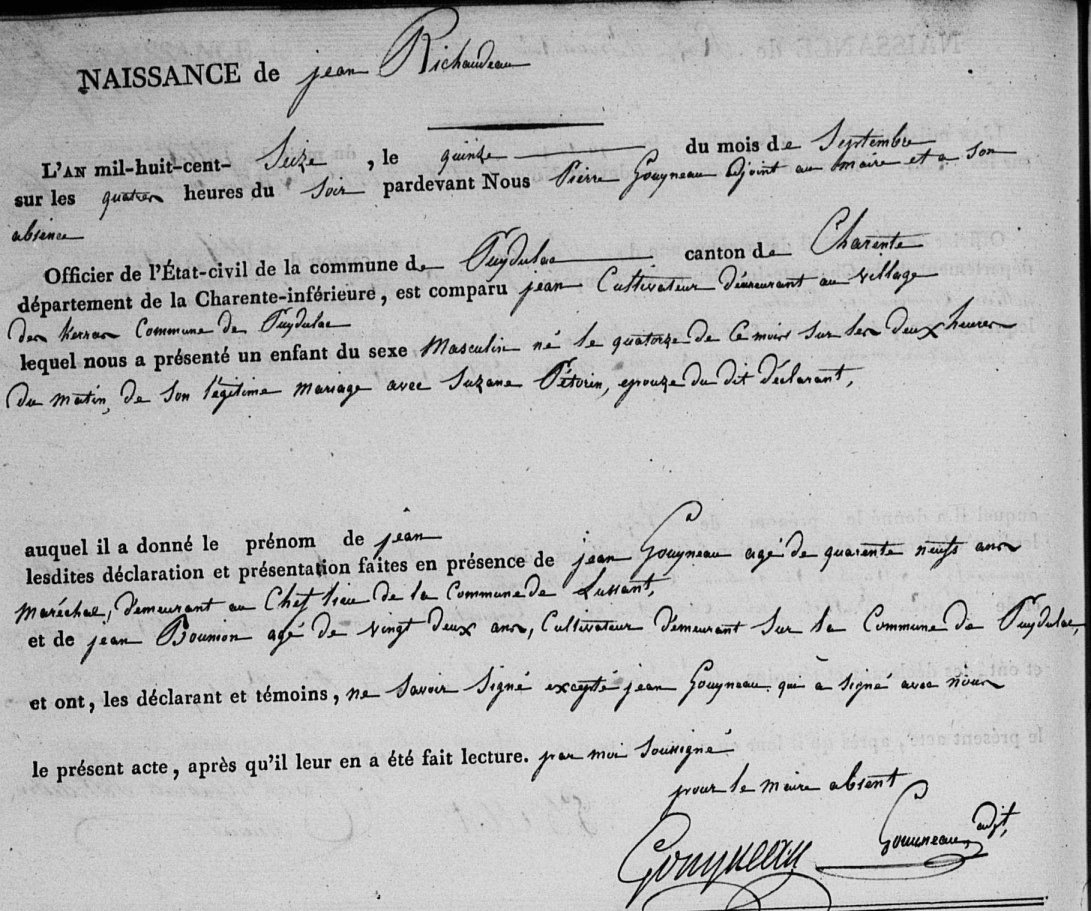 NAISSANCE de jean Richaudeau
L'AN mil-huit-cent- Seize , le quinze du mois de Septembre
sur les quatres heures du Soir pardevant Nous Pierre Gouyneau adjoint au maire et a son
absence
Officier de l'État-civil de la commune de Puydulac canton de Charente
département de la Charente-inférieure, est comparu jean Cultivateur demeurant au village
des Commune de Puydulac
lequel nous a présenté un enfant du sexe Masculin né le quatorze de ce mois sur les deux heures
du matin, de son légitime mariage avec Suzane Pétorin, epouze du dit déclarant,
auquel il a donné le prénom de jean
lesdites déclaration et présentation faites en présence de jean Gouyneau agé de quarente neufs ans
Maréchal, demeurant au Chef lieu de la Commune de Lussant,
et de jean Bounion agé de vingt deux ans, Cultivateur demeurant Sur la Commune de Puydulac,
et ont, les déclarant et témoins, ne Savoir Signé excepté jean Gouyneau qui a signé avec nous
le présent acte, après qu'il leur en a été fait lecture. par moi Soussigné
pour le maire absent
Gouyneau Gouyneau, adjt,